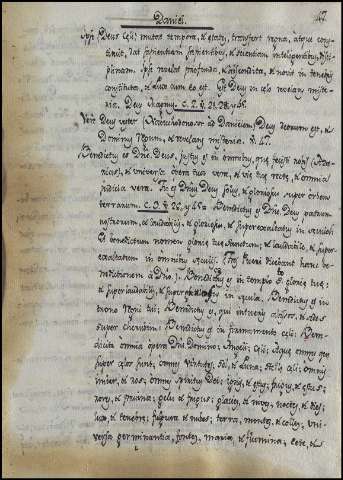 Daniel. 47.
Ipse Deus cęli mutat tempora, & ętates, transfert regna, atque con-
stituit, dat sapientiam sapientibus, & scientiam intelligentibus disci-
plinam. Ipse revelat profunda, & abscondita, & novit in tenebris
constituta, & lux cum eo est. Est Deus in celo revelans myste-
ria. Deus magnus. c. 2. ỹ. 21. 28. 45.
Verè Deus vester (Nabuchodonosor ad Danielem) Deus deorum est, &
Dominus regum, & revelans mysteria. ỹ. 47.
Benedictus es Dñe. Deus, justus es in omnibus, quę fecisti nobis
& universa opera tua vera, & vię tuę rectę, & omnia
judicia vera. Tu es Dñus Deus solus, & gloriosus super orbem
terrarum. c. 3. 26. 45. Benedictus es Dñe Deus patrum
nostrorum, & laudabilis, & gloriosus, & superexaltatus in sęcula
Et benedictum nomen glorię tuę sanctum; & laudabile, & super-
exaltatum in omnibus sęculis. Tres Pueri dicebant hanc be-
nedictionem à Dño. Benedictus es in templo S. glorię tuę:
& superlaudabilis, & super in sęcula. Benedictus es in
trono Regni tui; Benedictus es, qui intueris abissos, & sedes
super cherubim: Benedictus es in firmamento cęli; Bene-
dicite omnia opera Dñi Domino; Angeli; Cęli; Aquę omnes quę
super cęlos sunt; omnes virtutes; sol, & luna; stellę cęli; omnis
imber, & ros; omnes spiritus Dei; ignis, & ęstus; frigus, & ęstus;
rores, & pruina; gelu & frigus; glacies, & nives; noctes, & dies;
lux, & tenebrę; fulgura, & nubes; terra, montes, & colles, uni-
versa germinantia, fontes, maria, & flumina, cete, &